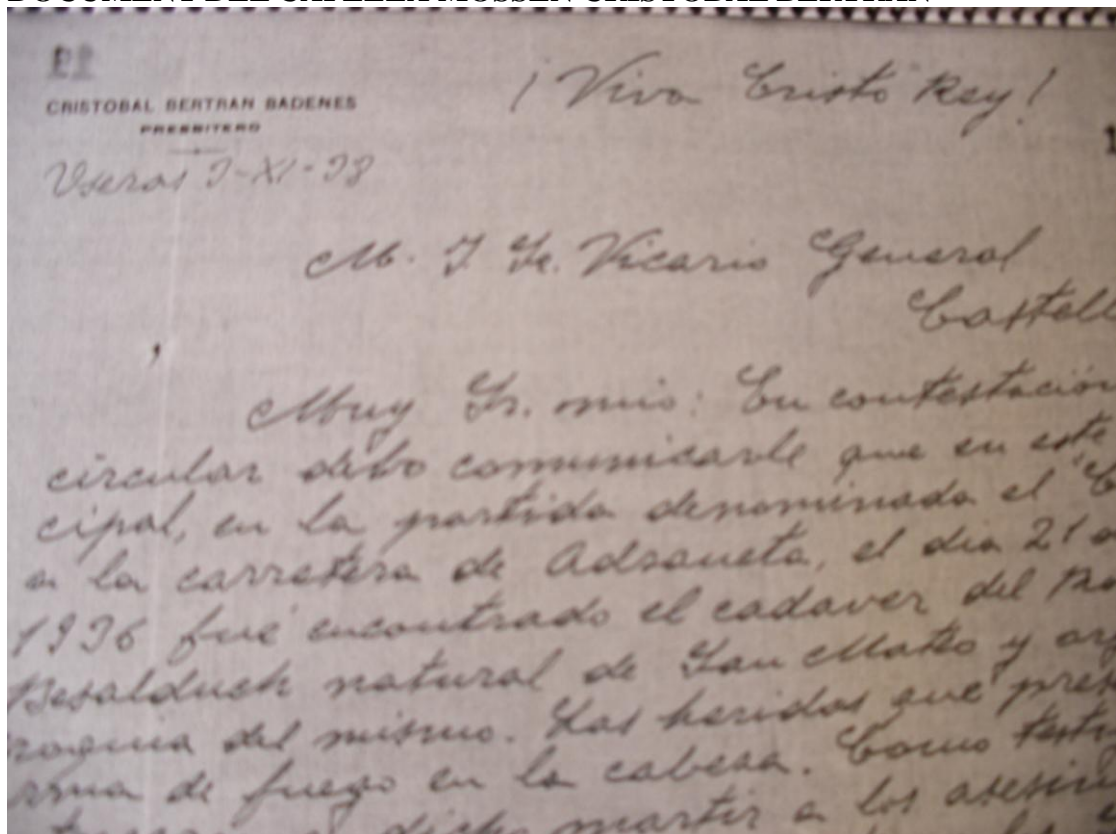 DOCUMENT DEL CAPELLÀ MOSSEN CRISTOBAL BERTRAN
CRISTOBAL BERTRAN BADENES
PRESBITERO
¡Viva Cristo Rey!
Useras 9-XI-38
M. I. Sr. Vicario General
Castell
Muy Sr. mio: En contestación
circular debo comunicarle que en este
cipal, en la partida denominada el
a la carretera de Adzaneta, el dia 21
1936 fue encontrado el cadaver del
Besalduch natural de San Mateo y
roquia del mismo. Las heridas que
rma de fuego en la cabeza. Como
dicho martir a los